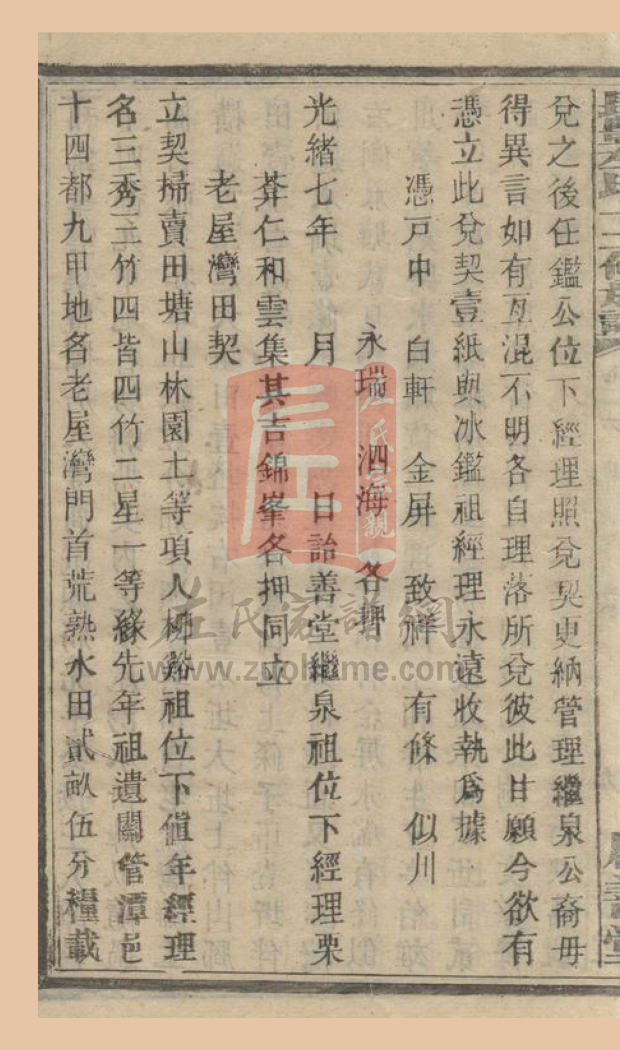 兌之後任鑑公位下經理照兌契更納管理繼泉公裔毋
得異言如有互混不明各自理落所兌彼此甘願今欲有
憑立此兌契壹紙與冰鑑祖經理永遠收執爲據
憑戸中 白軒 金屏 致祥 有條 似川
永瑞 泗海 各押
光緒七年 月 日詒善堂繼泉祖位下經理栗
莽仁和雲集其吉錦峯各押同立
老屋灣田契
立契掃賣田塘山林園土等項人柳谿祖位下值年經理
名三秀三竹四皆四竹二星一等緣先年祖遺關管潭邑
十四都九甲地名老屋灣門首荒熟水田貳畝伍分糧載
左氏家譜網
www.zuohome.com